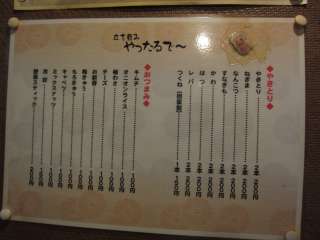 立ち呑み
やったるで〜
◆やきとり◆
やきとり……2本 200円
ねぎま……2本 200円
なんこつ……2本 200円
すなぎも……2本 200円
かわ……2本 200円
はつ……2本 200円
レバ……2本 200円
つくね……1本 150円
◆おつまみ◆
キムチ……100円
オニオンスライス……100円
枝豆……100円
チーズ……100円
お新香……100円
梅きゅう……100円
もろきゅう……100円
キャベツ……100円
ミックスナッツ……100円
冷奴……100円
野菜スティック……200円